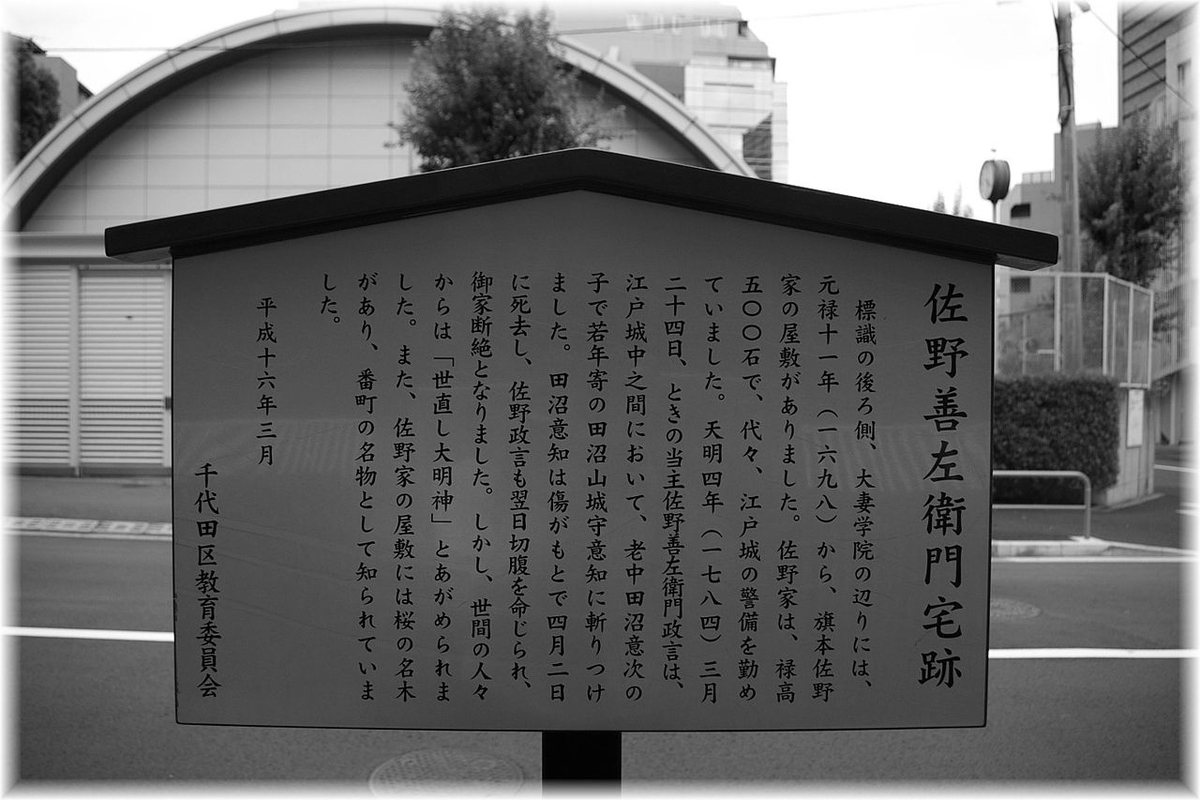 佐野善左衛門宅跡
標識の後ろ側、大妻学院の辺りには、
元禄十一年（一六九八）から、旗本佐野
家の屋敷がありました。佐野家は、禄高
五〇〇石で、代々、江戸城の警備を勤め
ていました。天明四年（一七八四）三月
二十四日、ときの当主佐野善左衛門政言は、
江戸城中之間において、老中田沼意次の
子で若年寄の田沼山城守意知に斬りつけ
ました。田沼意知は傷がもとで四月二日
に死去し、佐野政言も翌日切腹を命じられ、
御家断絶となりました。しかし、世間の人々
からは「世直し大明神」とあがめられま
した。また、佐野家の屋敷には桜の名木
があり、番町の名物として知られていま
した。
平成十六年三月
千代田区教育委員会